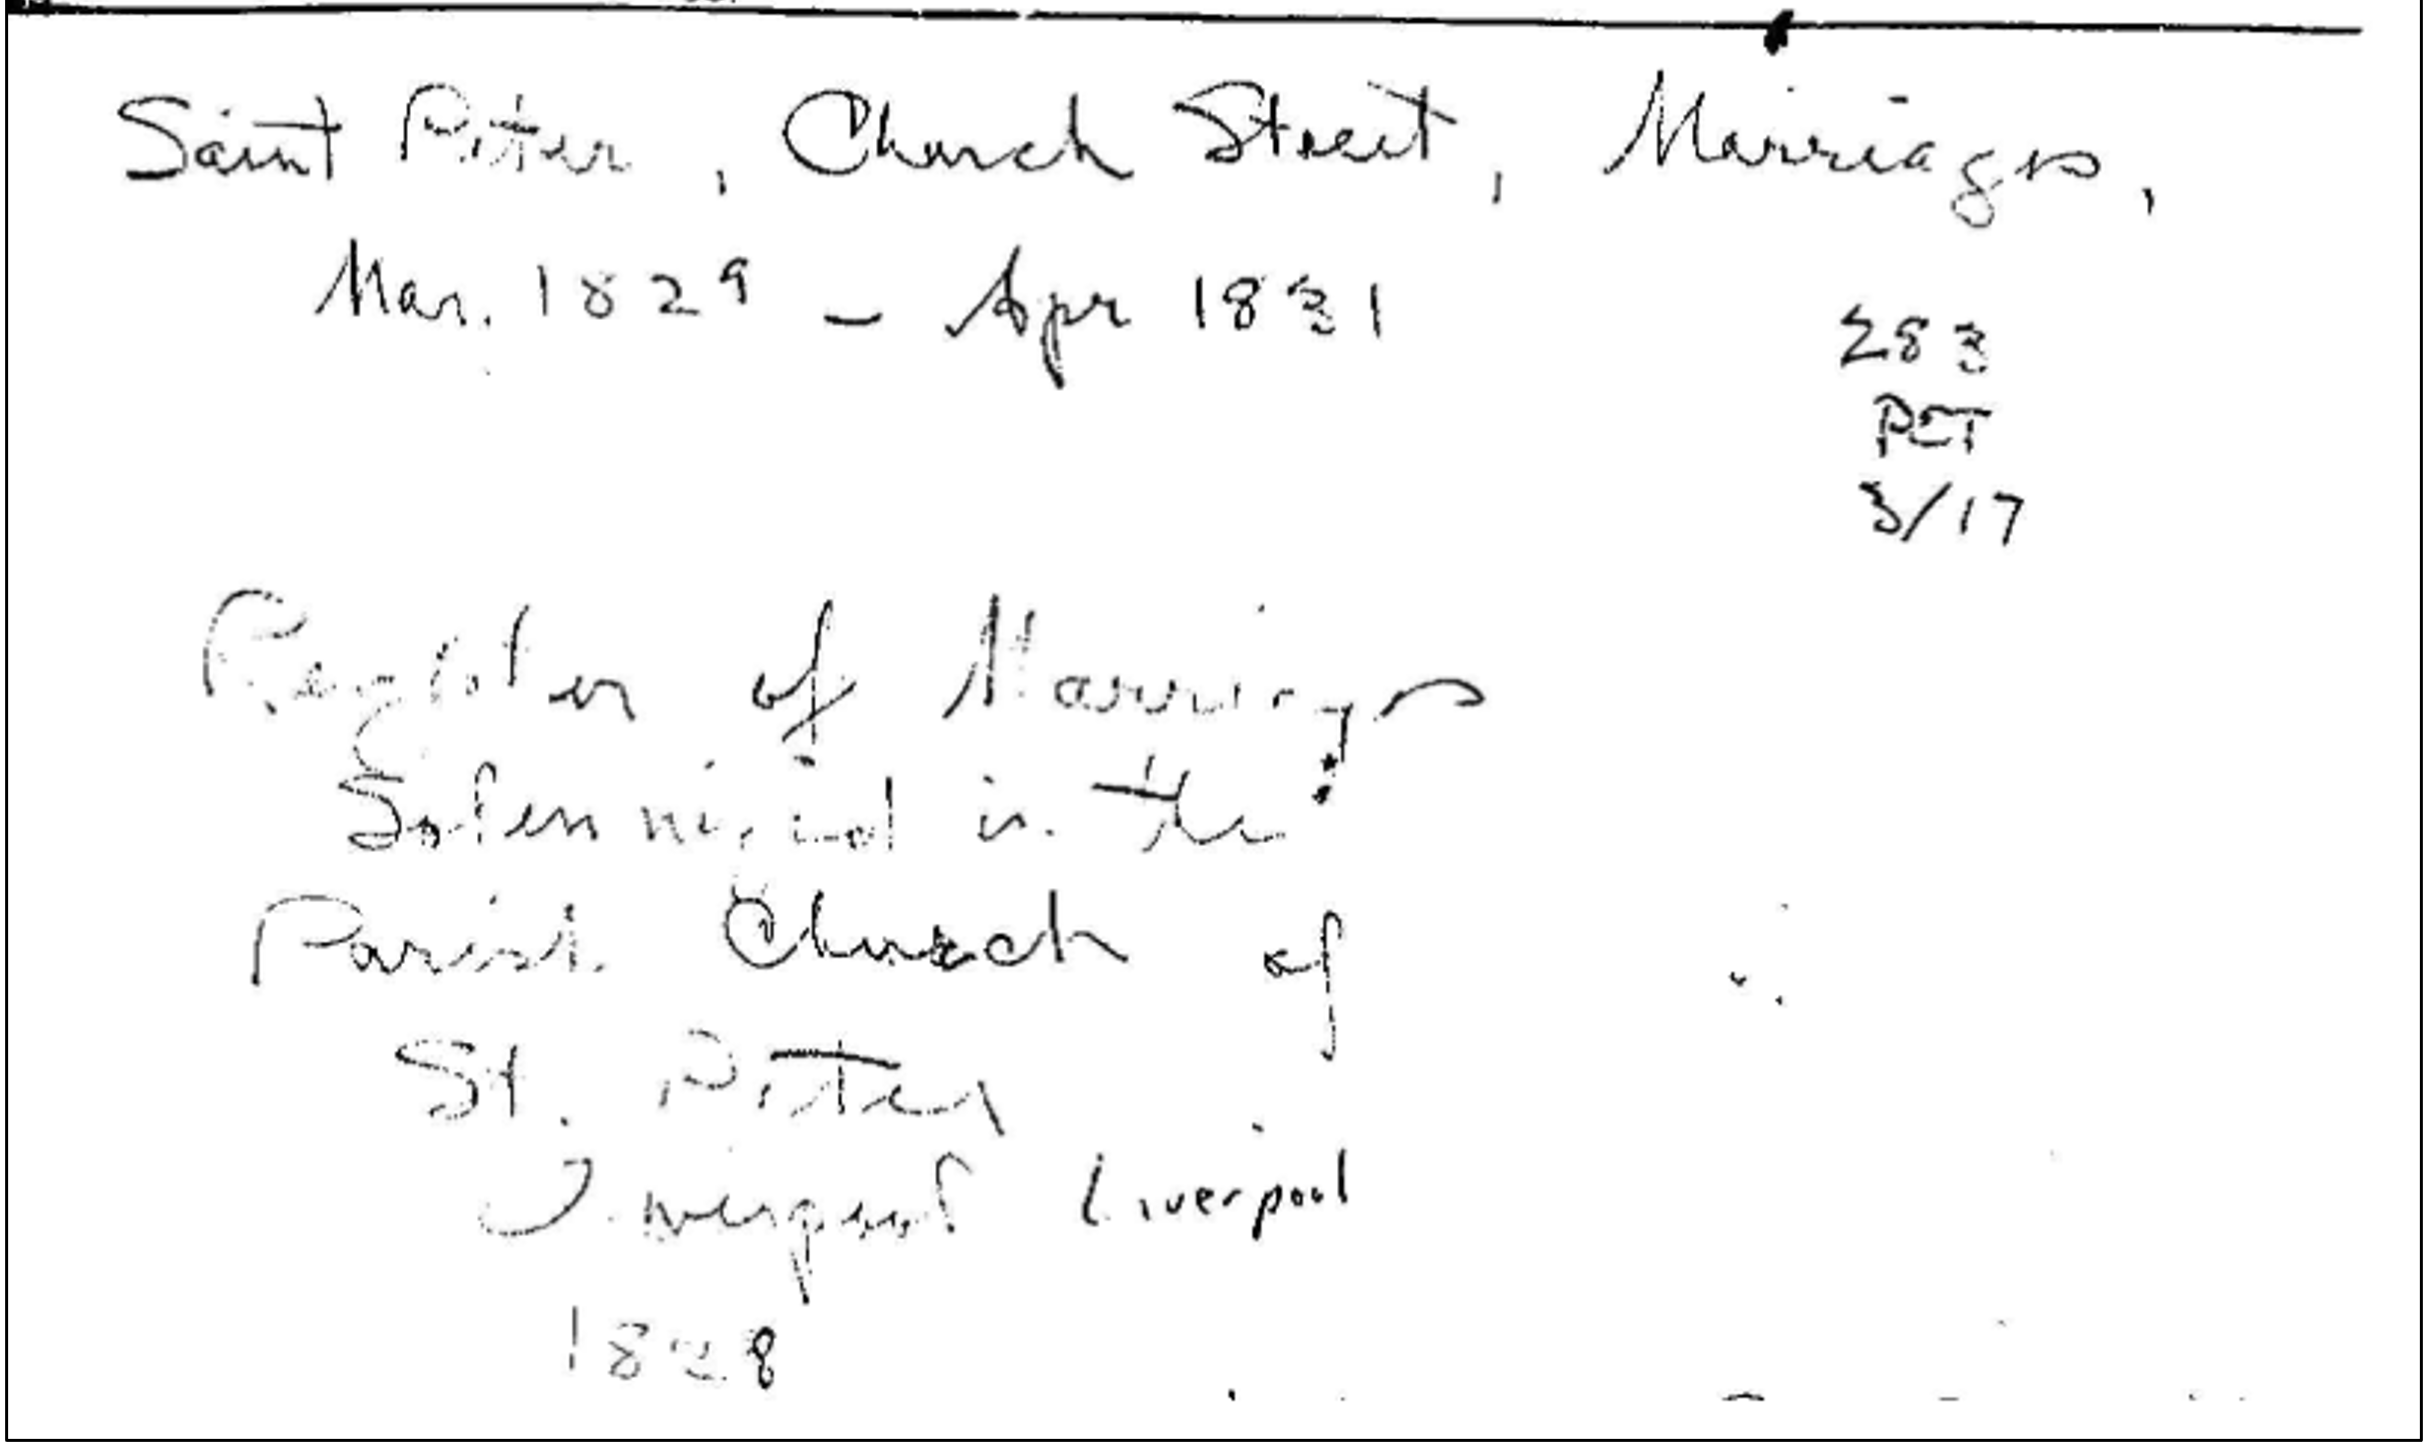 Saint Peter, Church Street, Marriages,
Mar. 1829 - Apr 1831
283
PET
3/17
Register of Marriages
Solemnized in the
Parish Church of
St. Peter
Liverpool Liverpool
1828